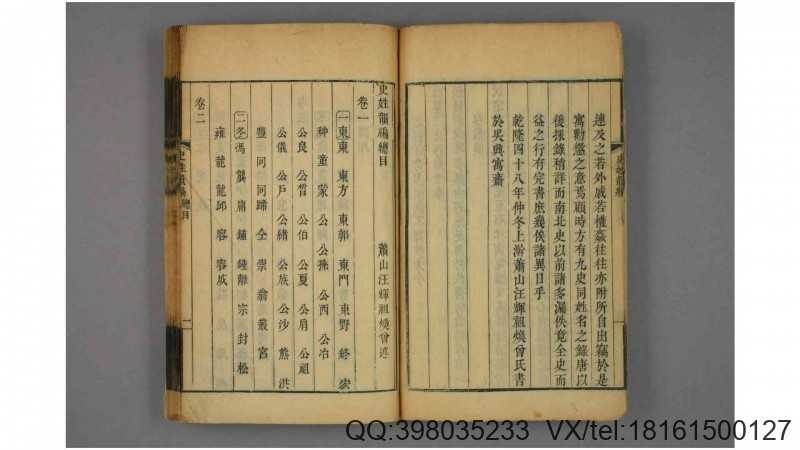 連及之若外戚若權姦往往亦附所自出竊於是
寓勸懲之意焉顧時方有九史同姓名之錄唐以
後採錄稍詳而南北史以前諸多漏佚竟全史而
益之行有完書庶幾俟諸異日乎
乾隆四十八年仲冬上澣蕭山汪輝祖煥曾氏書
於吳興寓齋
史姓韻編
史姓韻編總目
蕭山汪輝祖煥曾述
卷一
一東東 東方 東郭 東門 東野 終 宏
种 童 蒙 公 公孫 公西 公冶
公良 公晳 公伯 公夏 公肩 公祖
公儀 公戶 公緒 公族 公沙 熊 洪
豐 同 同蹄 仝 崇 翁 叢 宮
二冬馮 龔 庸 鍾 鍾離 宗 封 松
雍 龍 龍邱 容 容成
卷二
史姓韻編總目
一
QQ:398035233 VX/tel:18161500127